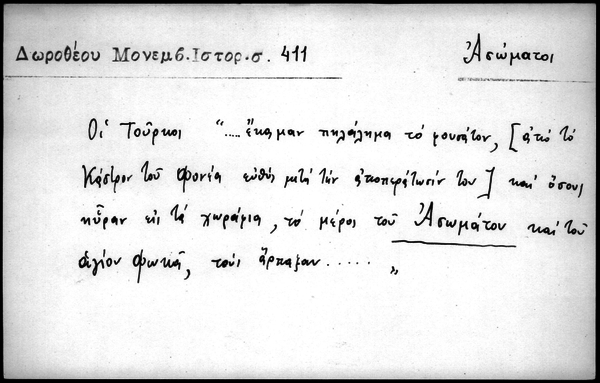 Δωροθέου Μονεμβ.Ιστορ.σ. 411
Ἀσώματοι
Οἱ Τοῦρκοι "....ἔκαμαν πηλάλημα τὸ φουσάτον, [ἀπὸ τὸ
Κάστρον τοῦ Φονέα εὐθὺς μετὰ τὴν ἀποπεράτωσίν του] καὶ ὅσους
ηὗραν εἰς τὰ χωράφια, τὸ μέρος τοῦ Ἀσωμάτου καὶ τοῦ
ἁγίου Φωκᾶ, τοὺς ἅρπαξαν ..... "